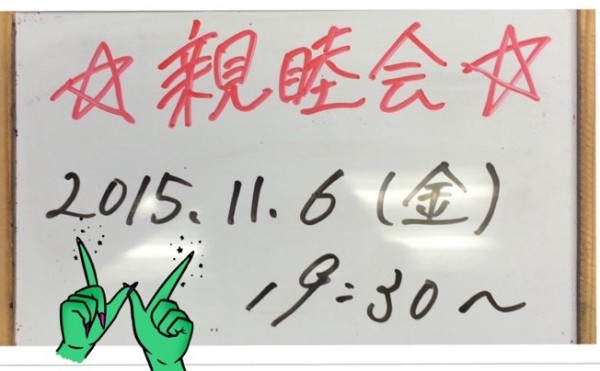 ☆親睦会☆
2015.11.6(金)
19:30~